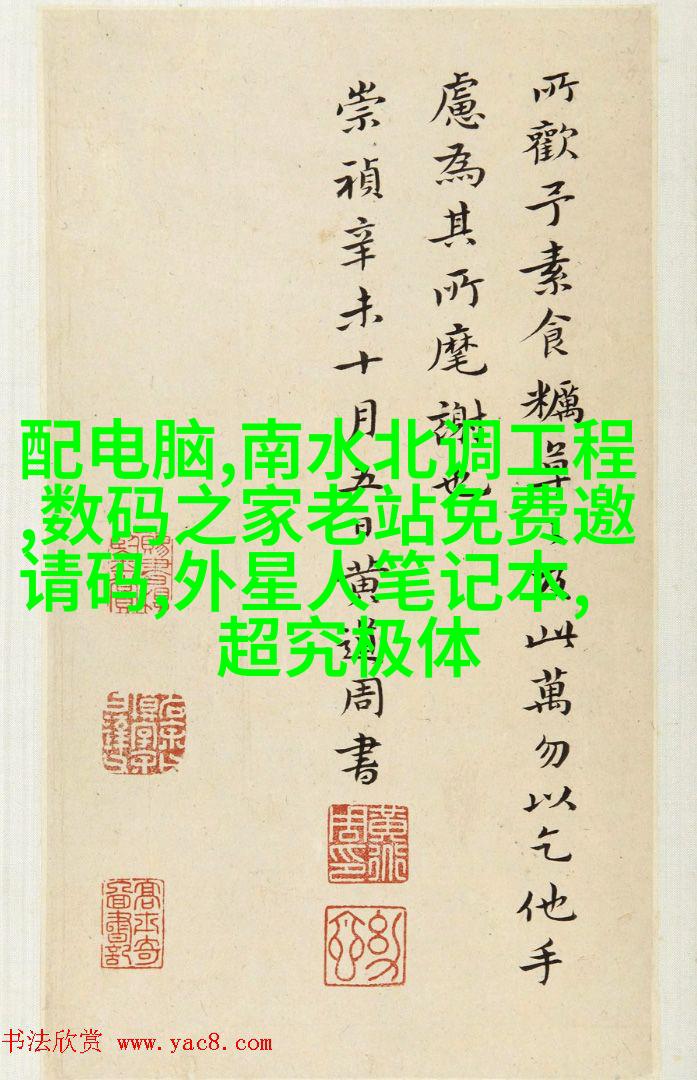 所歡予素食糲草
此萬勿以乞他手
慮為其所麾謝也
崇禎辛未十月五日黄道周書
配电脑,南水北调工程
,数码之家老站免费邀
请码,外星人笔记本,
超究极体
黄道周印
书法欣赏 www.yac8.com